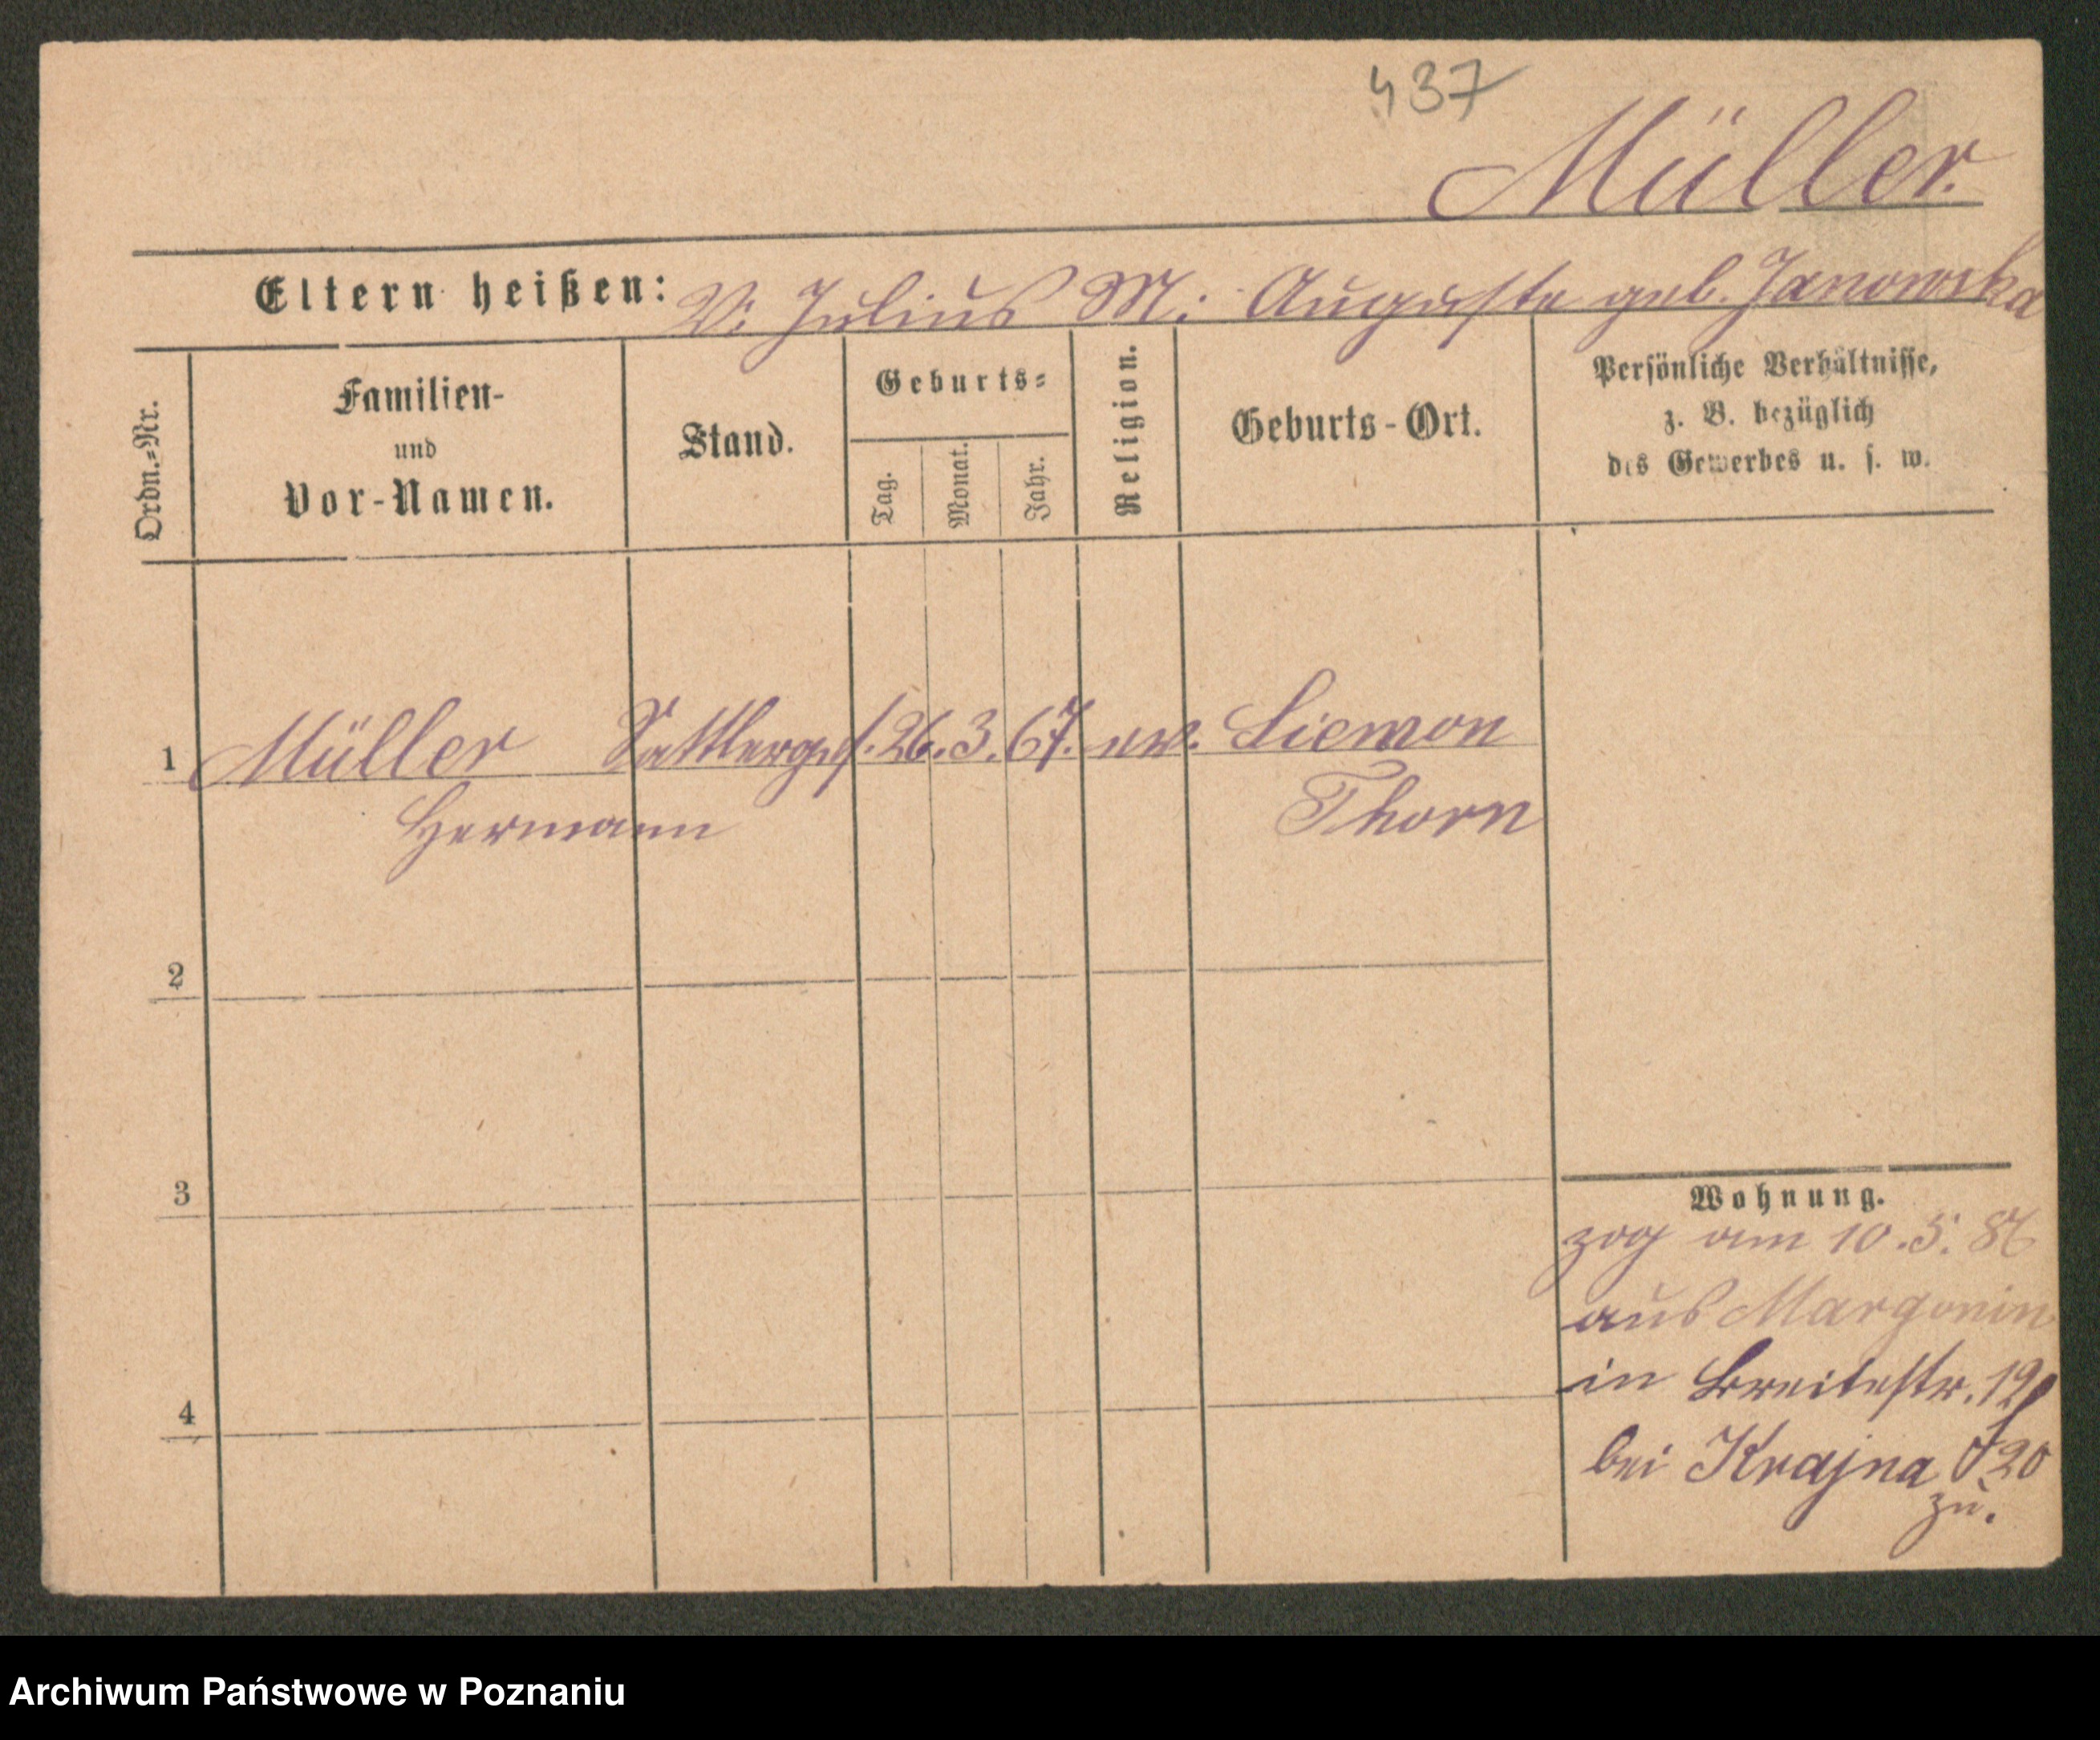 437
Müller.
Eltern heißen: V. Julius M: Auguste geb. Janowska
Ordn.-Nr.
Familien-
und
Vor-Namen.
Stand.
Geburts-
Tag.
Monat.
Jahr.
Religion.
Geburts-Ort.
Persönliche Verhältnisse,
z. B. bezüglich
des Gewerbes u. s. w.
1 Müller Sattlerges. 26. 3. 67. ev. Siemon
Hermann Thorn
2
3
4
Wohnung.
zog am 10. 5.
aus Margonin
in Breitestr. 19/
bei Krajna 20
zu.
Archiwum Państwowe w Poznaniu